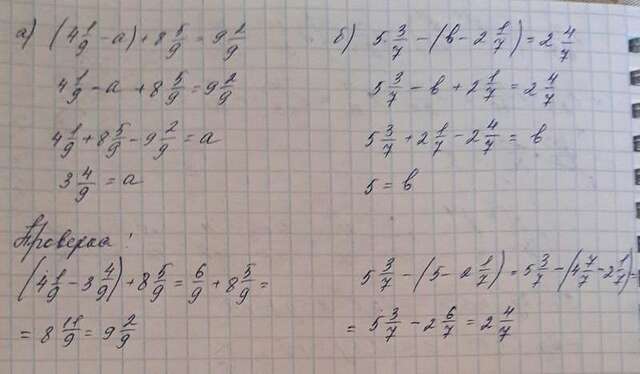 а) (4 1/9 - a) + 8 5/9 = 9 2/9
4 1/9 - a + 8 5/9 = 9 2/9
4 1/9 + 8 5/9 - 9 2/9 = a
3 4/9 = a
б) 5 3/7 - (в - 2 1/7) = 2 4/7
5 3/7 - в + 2 1/7 = 2 4/7
5 3/7 + 2 1/7 - 2 4/7 = в
5 = в
Проверка:
(4 1/9 - 3 4/9) + 8 5/9 = 6/9 + 8 5/9 =
= 8 11/9 = 9 2/9
5 3/7 - (5 - 2 1/7) = 5 3/7 - (4 7/7 - 2 1/7) =
= 5 3/7 - 2 6/7 = 2 4/7